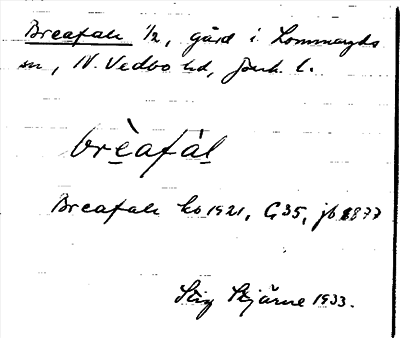 Breafale 1/2, gård i Lommaryds
sn, N. Vedbo hd, Jönk. l.
brèafàl
Breafale ko 1921, G35, jb 1877
Stig Bjärne 1933.